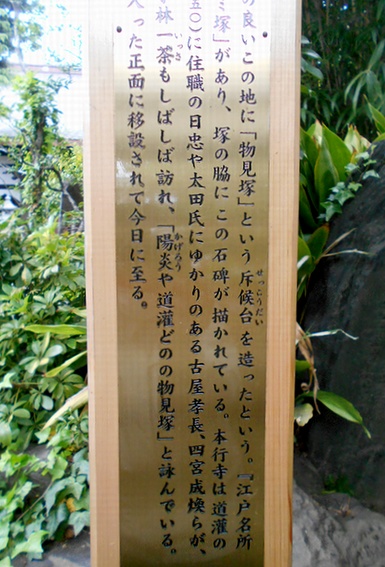 の良いこの地に「物見塚」という斥候台を造ったという。『江戸名所
せっこうだい
ミ塚」があり、塚の脇にこの石碑が描かれている。本行寺は道灌の
五〇)に住職の日忠や太田氏にゆかりのある古屋孝長、四宮成煥らが、
林一茶もしばしば訪れ、「陽炎や道灌どのの物見塚」と詠んでいる。
いっさ
かげろう
入った正面に移設されて今日に至る。